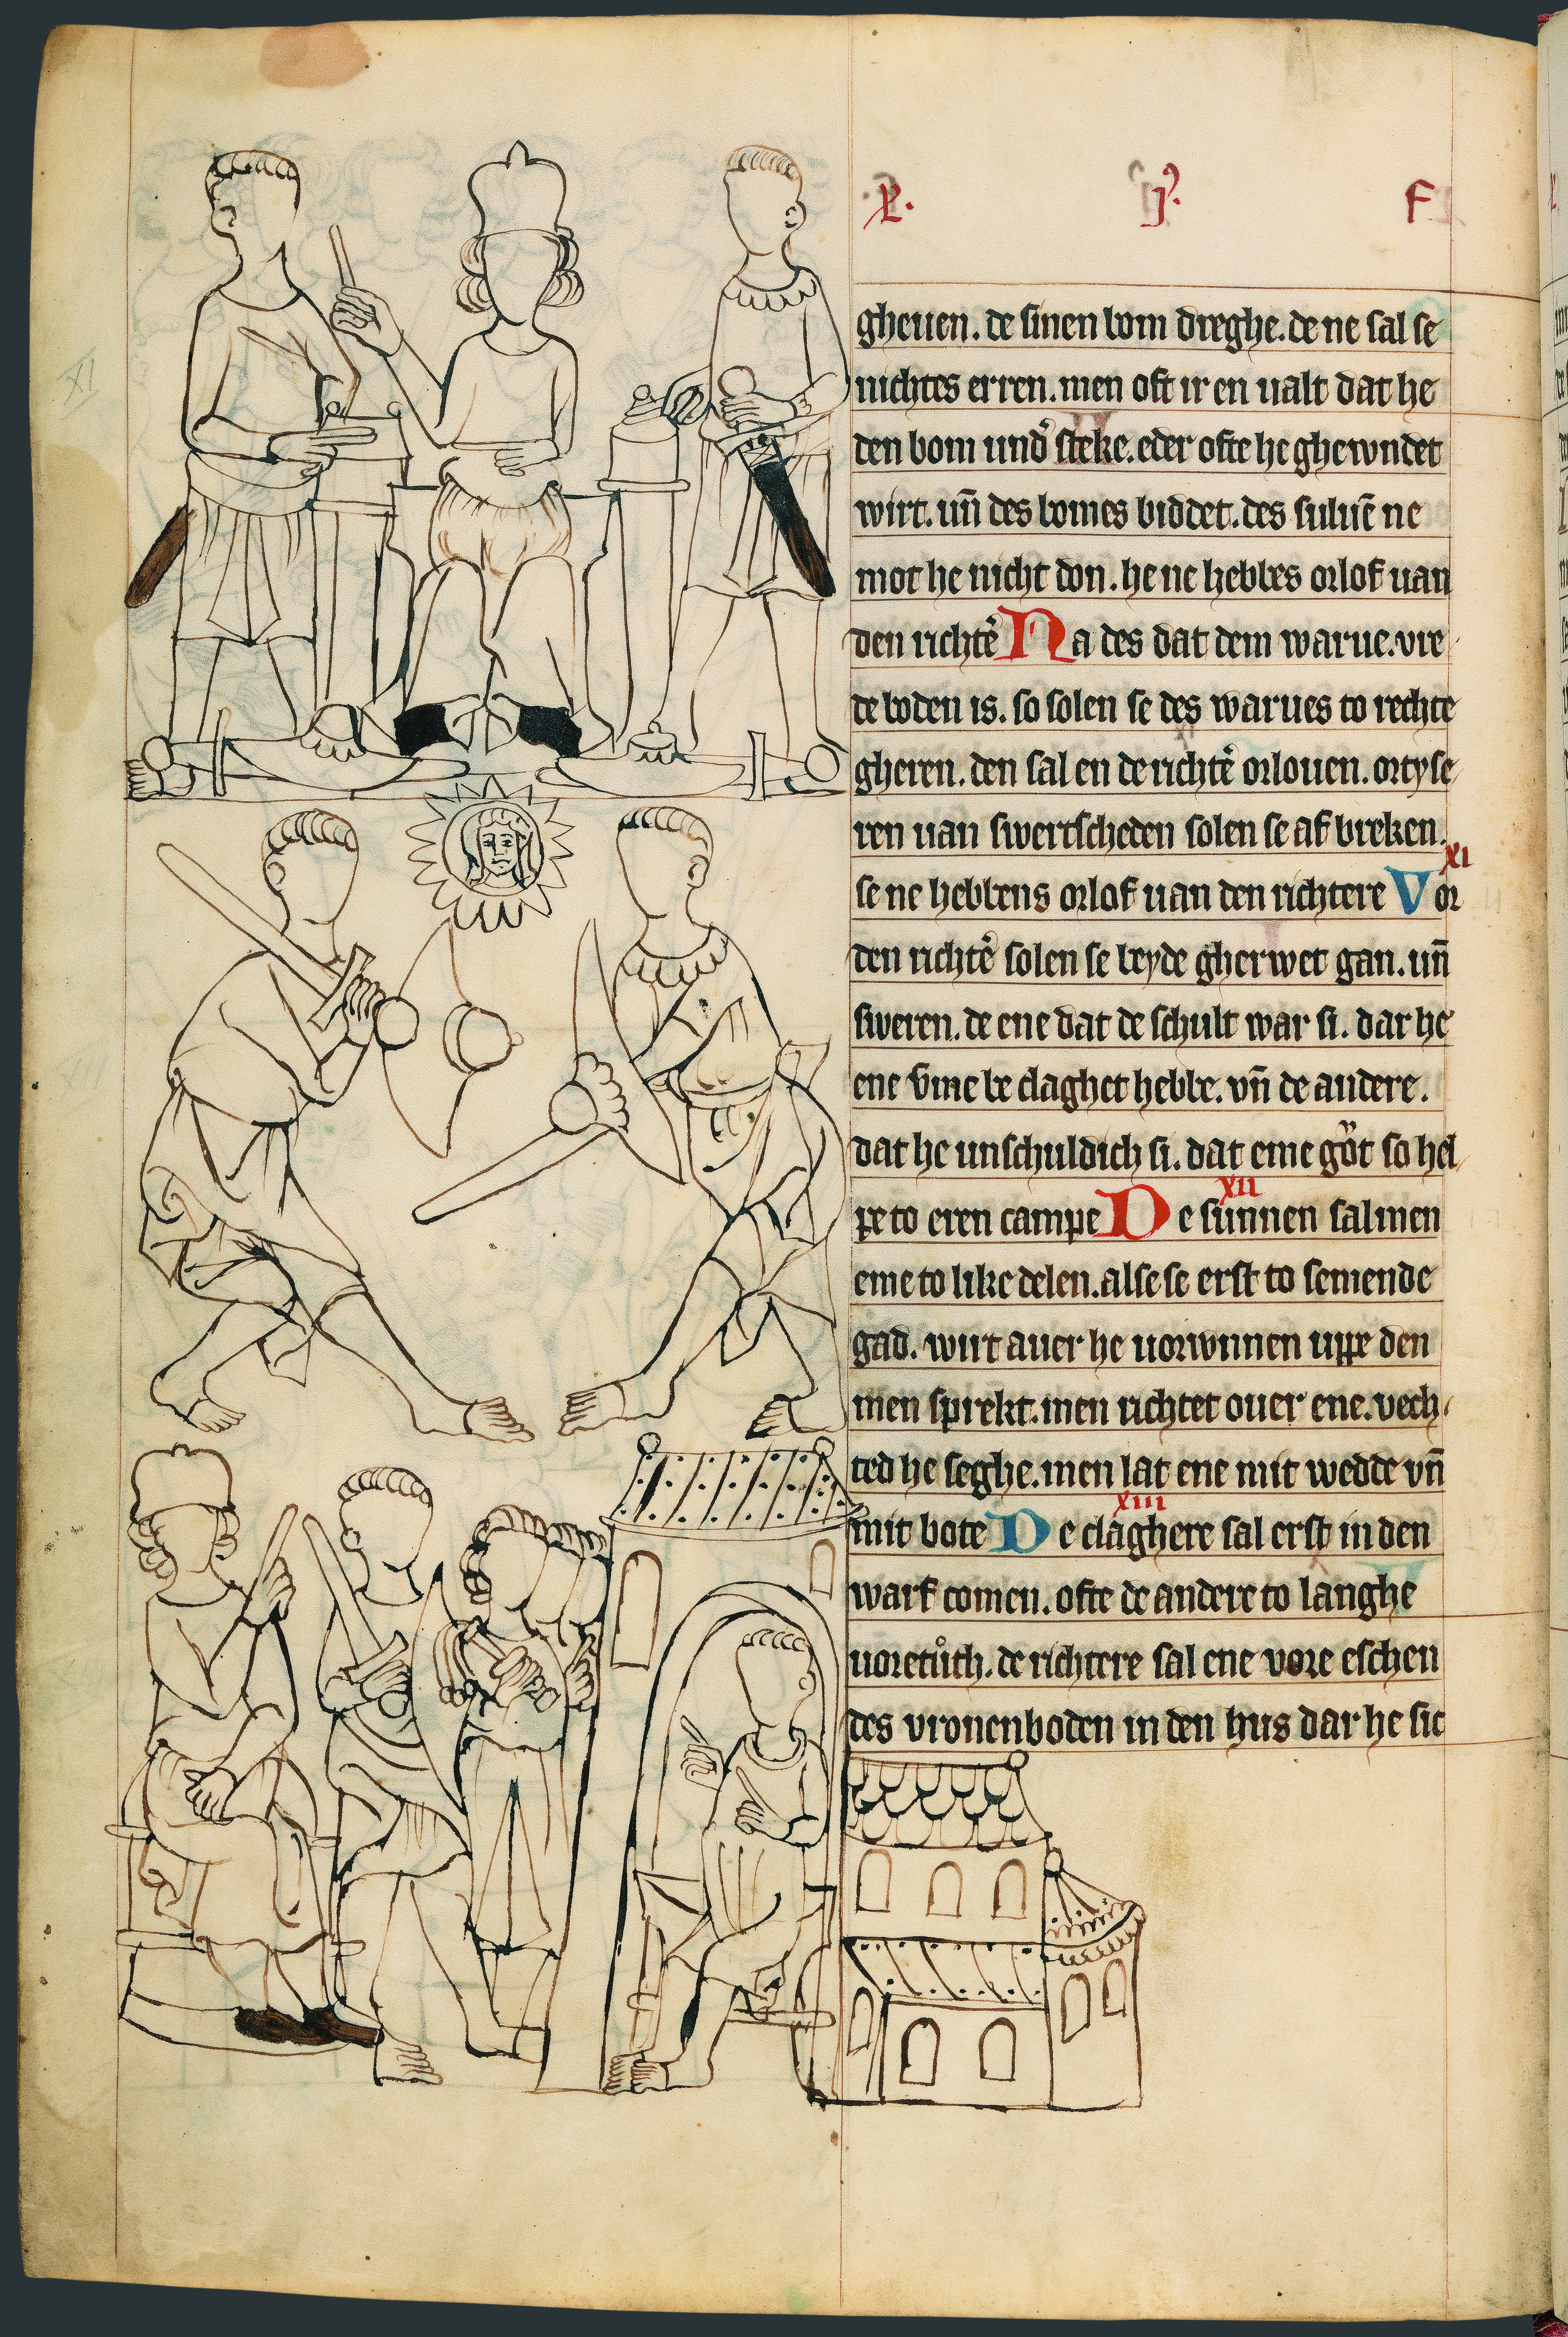 gheuen. de sinen bom dreghe. de ne sal se
nichtes erren. men oft ir en ualt dat he
den bom und͛ steke. eder ofte he ghewndet
wirt. un̄ des bomes biddet. des suluē ne
mot he nicht don. he ne hebbes orlof uan
den richt͛e Na des dat dem warue. vre
de boden is. so solen se des warues to rechte
gheren. den sal en de richt͛e orlouen. ortyse
ren uan swertscheden solen se af breken.
XI
se ne hebbens orlof uan den richtere Vor
den richt͛e solen se beyde gherwet gan. un̄
sweren. de ene dat de schult war si. dar he
ene v̄me be claghet hebbe. vn̄ de andere.
dat he unschuldich si. dat eme got so hel
XII
pe to eren campe De sunnen salmen
eme to like delen. alse se erst to semende
gad. wirt auer he uorwnnen uppe den
men sprekt. men richtet ouer ene. vech
ted he seghe. men lat ene mit wedde vn̄
XIII
mit bote De claghere sal erst in den
warf comen. ofte de andere to langhe
uoretůch. de richtere sal ene vore eschen
des vronenboden in den hus dar he sic